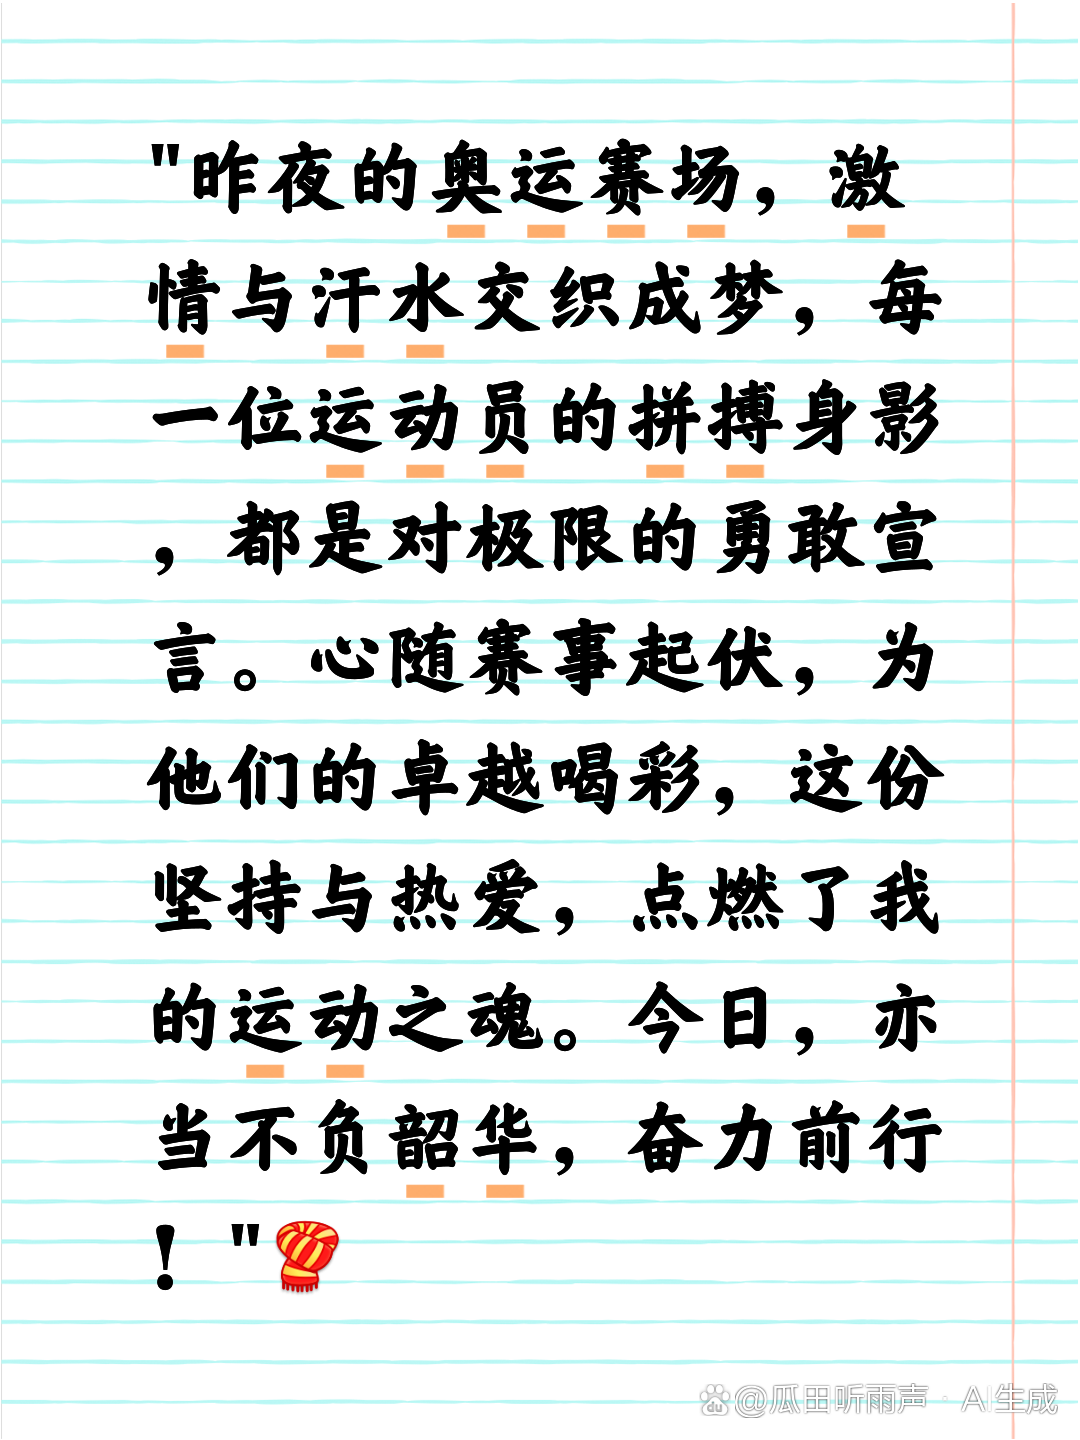 "昨夜的奥运赛场，激
情与汗水交织成梦，每
一位运动员的拼搏身影
，都是对极限的勇敢宣
言。心随赛事起伏，为
他们的卓越喝彩，这份
坚持与热爱，点燃了我
的运动之魂。今日，亦
当不负韶华，奋力前行
！"
du @瓜田听雨声 · AI生成